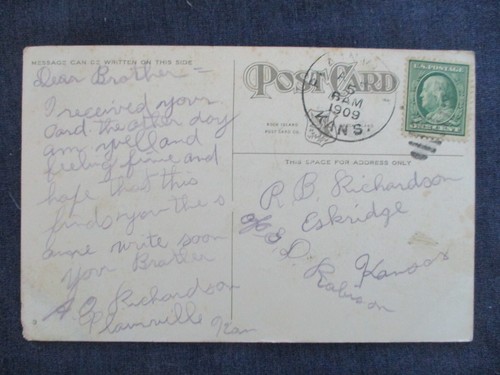 MESSAGE CAN BE WRITTEN ON THIS SIDE
Dear Brother -
I received your
Card the other day
am well and
feeling fine and
hope that this
finds you the s
ame write soon
Your Brother
A. O. Richardson
Plainville Kan
POST CARD
ROCK ISLAND
POST CARD CO.
5
8 AM
1909
KANS.
U.S. POSTAGE
ONE CENT
THIS SPACE FOR ADDRESS ONLY
R B. Richardson
Eskridge
Kansas
Robison